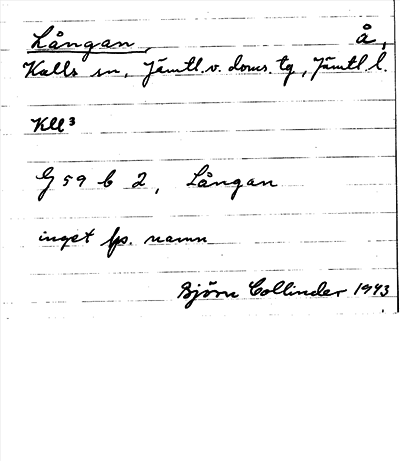 Långan, å,
Kalls sn, Jämtl. v. doms. tg, Jämtl. l.
Kll³
G 59 b 2, Långan
inget lp. namn
Björn Collinder 1943